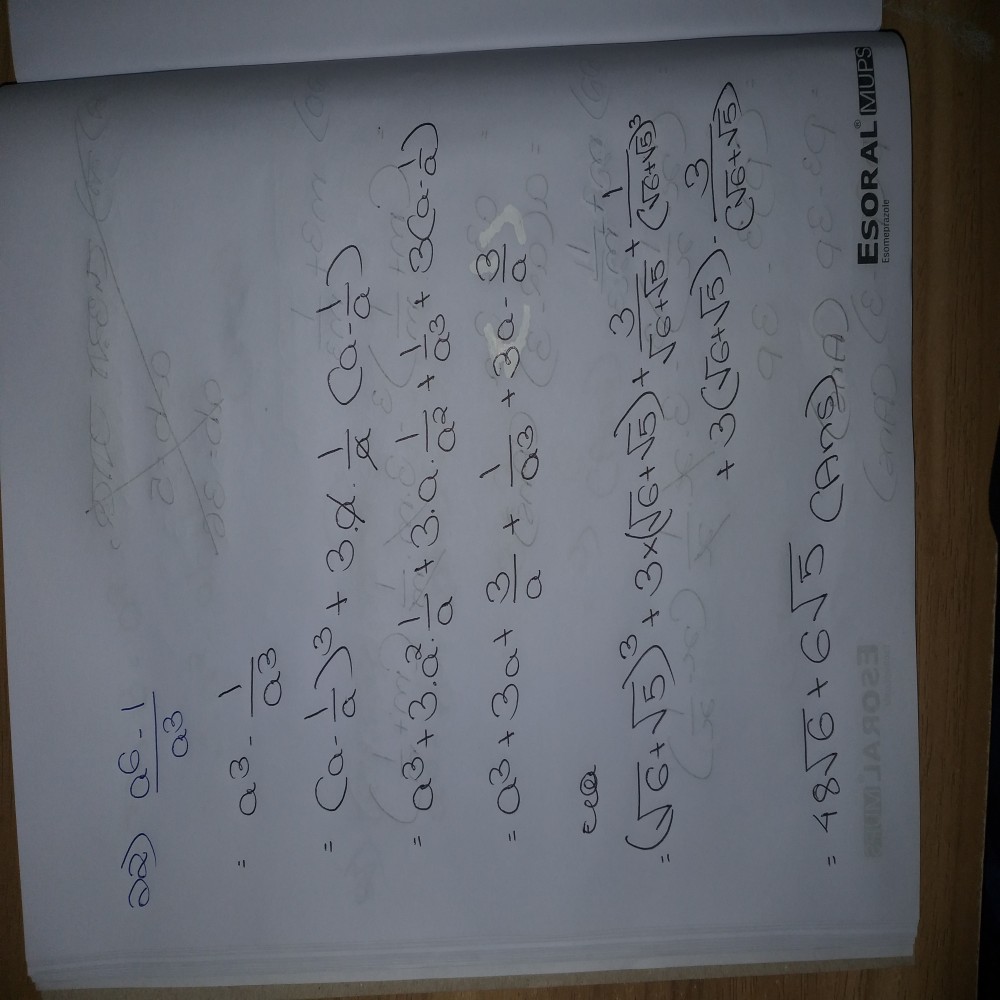 ২২) a6-1/a3
= a3 - 1/a3
= (a-1/a)³ + 3.a.1/a (a-1/a)
= a3+3.a².1/a+3.a.1/a²+1/a3+3(a-1/a)
= a3+3a+3/a+1/a3+3a-3/a
= (√6+√5)³+3×(√6+√5)+3/√6+√5+1/(√6+√5)³
+3(√6+√5).3/(√6+√5)
= 48√6+6√5 (Ans)
ESORAL® MUPS
Esomeprazole